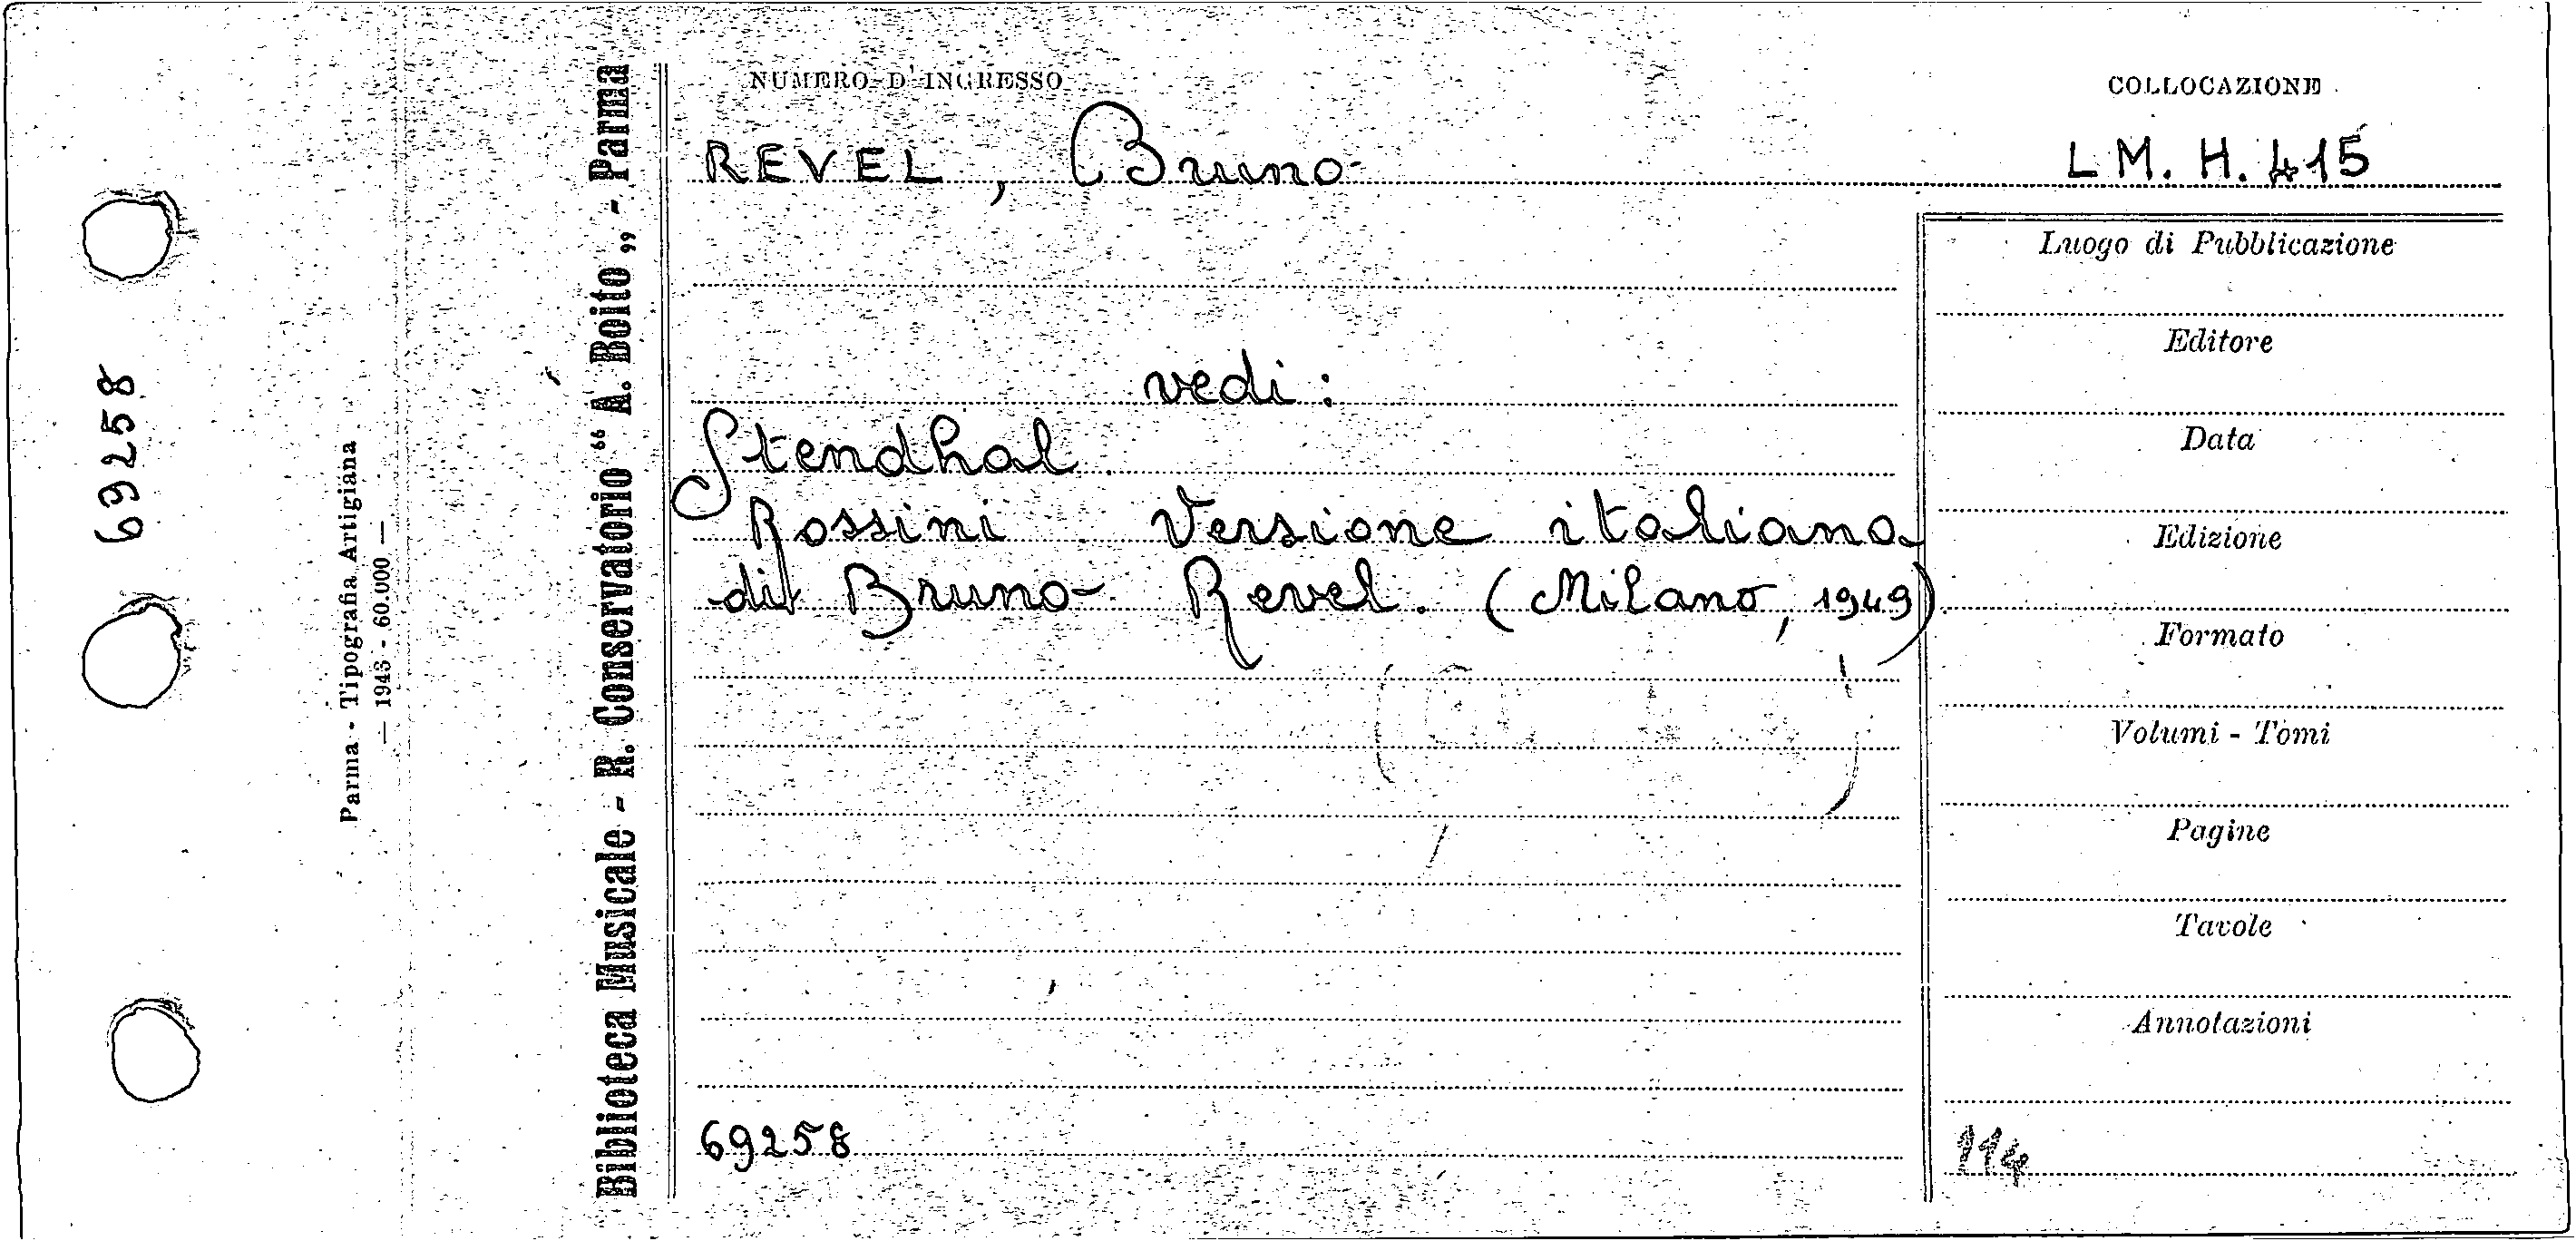 NUMERO D'INGRESSO
COLLOCAZIONE
REVEL, Bruno
LM. H. 415
vedi:
Stendhal
Rossini Versione italiana
di Bruno Revel. (Milano, 1949)
69258
Luogo di Pubblicazione
Editore
Data
Edizione
Formato
Volumi - Tomi
Pagine
Tavole
Annotazioni
114
Biblioteca Musicale - R. Conservatorio “ A. Boito „ - Parma
Parma - Tipografia Artigiana
— 1943 - 60.000 —
69258